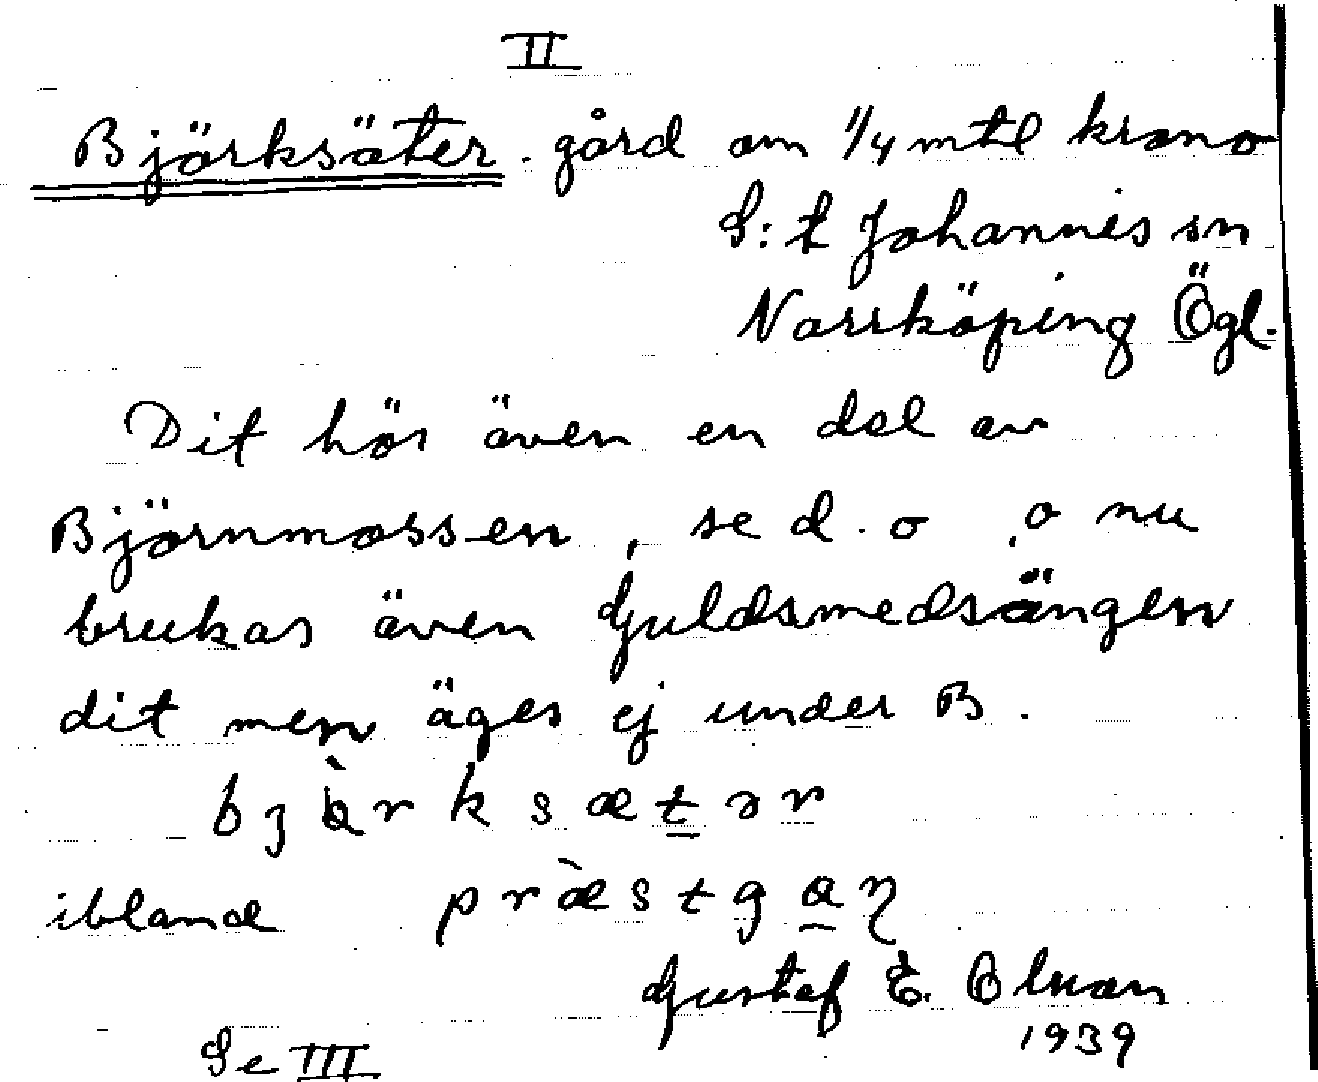 II
Björksäter. gård om 1/4 mtl krono
S:t Johannes sn
Norrköping Ögl.
Dit hör även en del av
Björnmossen, se d. o, o nu
brukas även Guldsmedsängen
dit men äges ej under B.
ibland
Gustaf E. Olson
1939
Se III